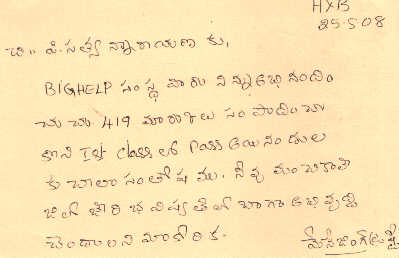 HYB
25-5-08
చి॥ పి. సత్య న్నారాయణ కు,
BIGHELP సంస్థ వారు నిన్ను అభినందిం
చుచూ 419 మార్కులు సంపాదించా
కాని Ist Class లో Pass అయినందుల
కు చాలా సంతోషము. నీవు ముంబకాసి
జిలో చేరి భవిష్యత్ లో బాగా అభివృద్ధి
చెందాలని మా కోరిక.